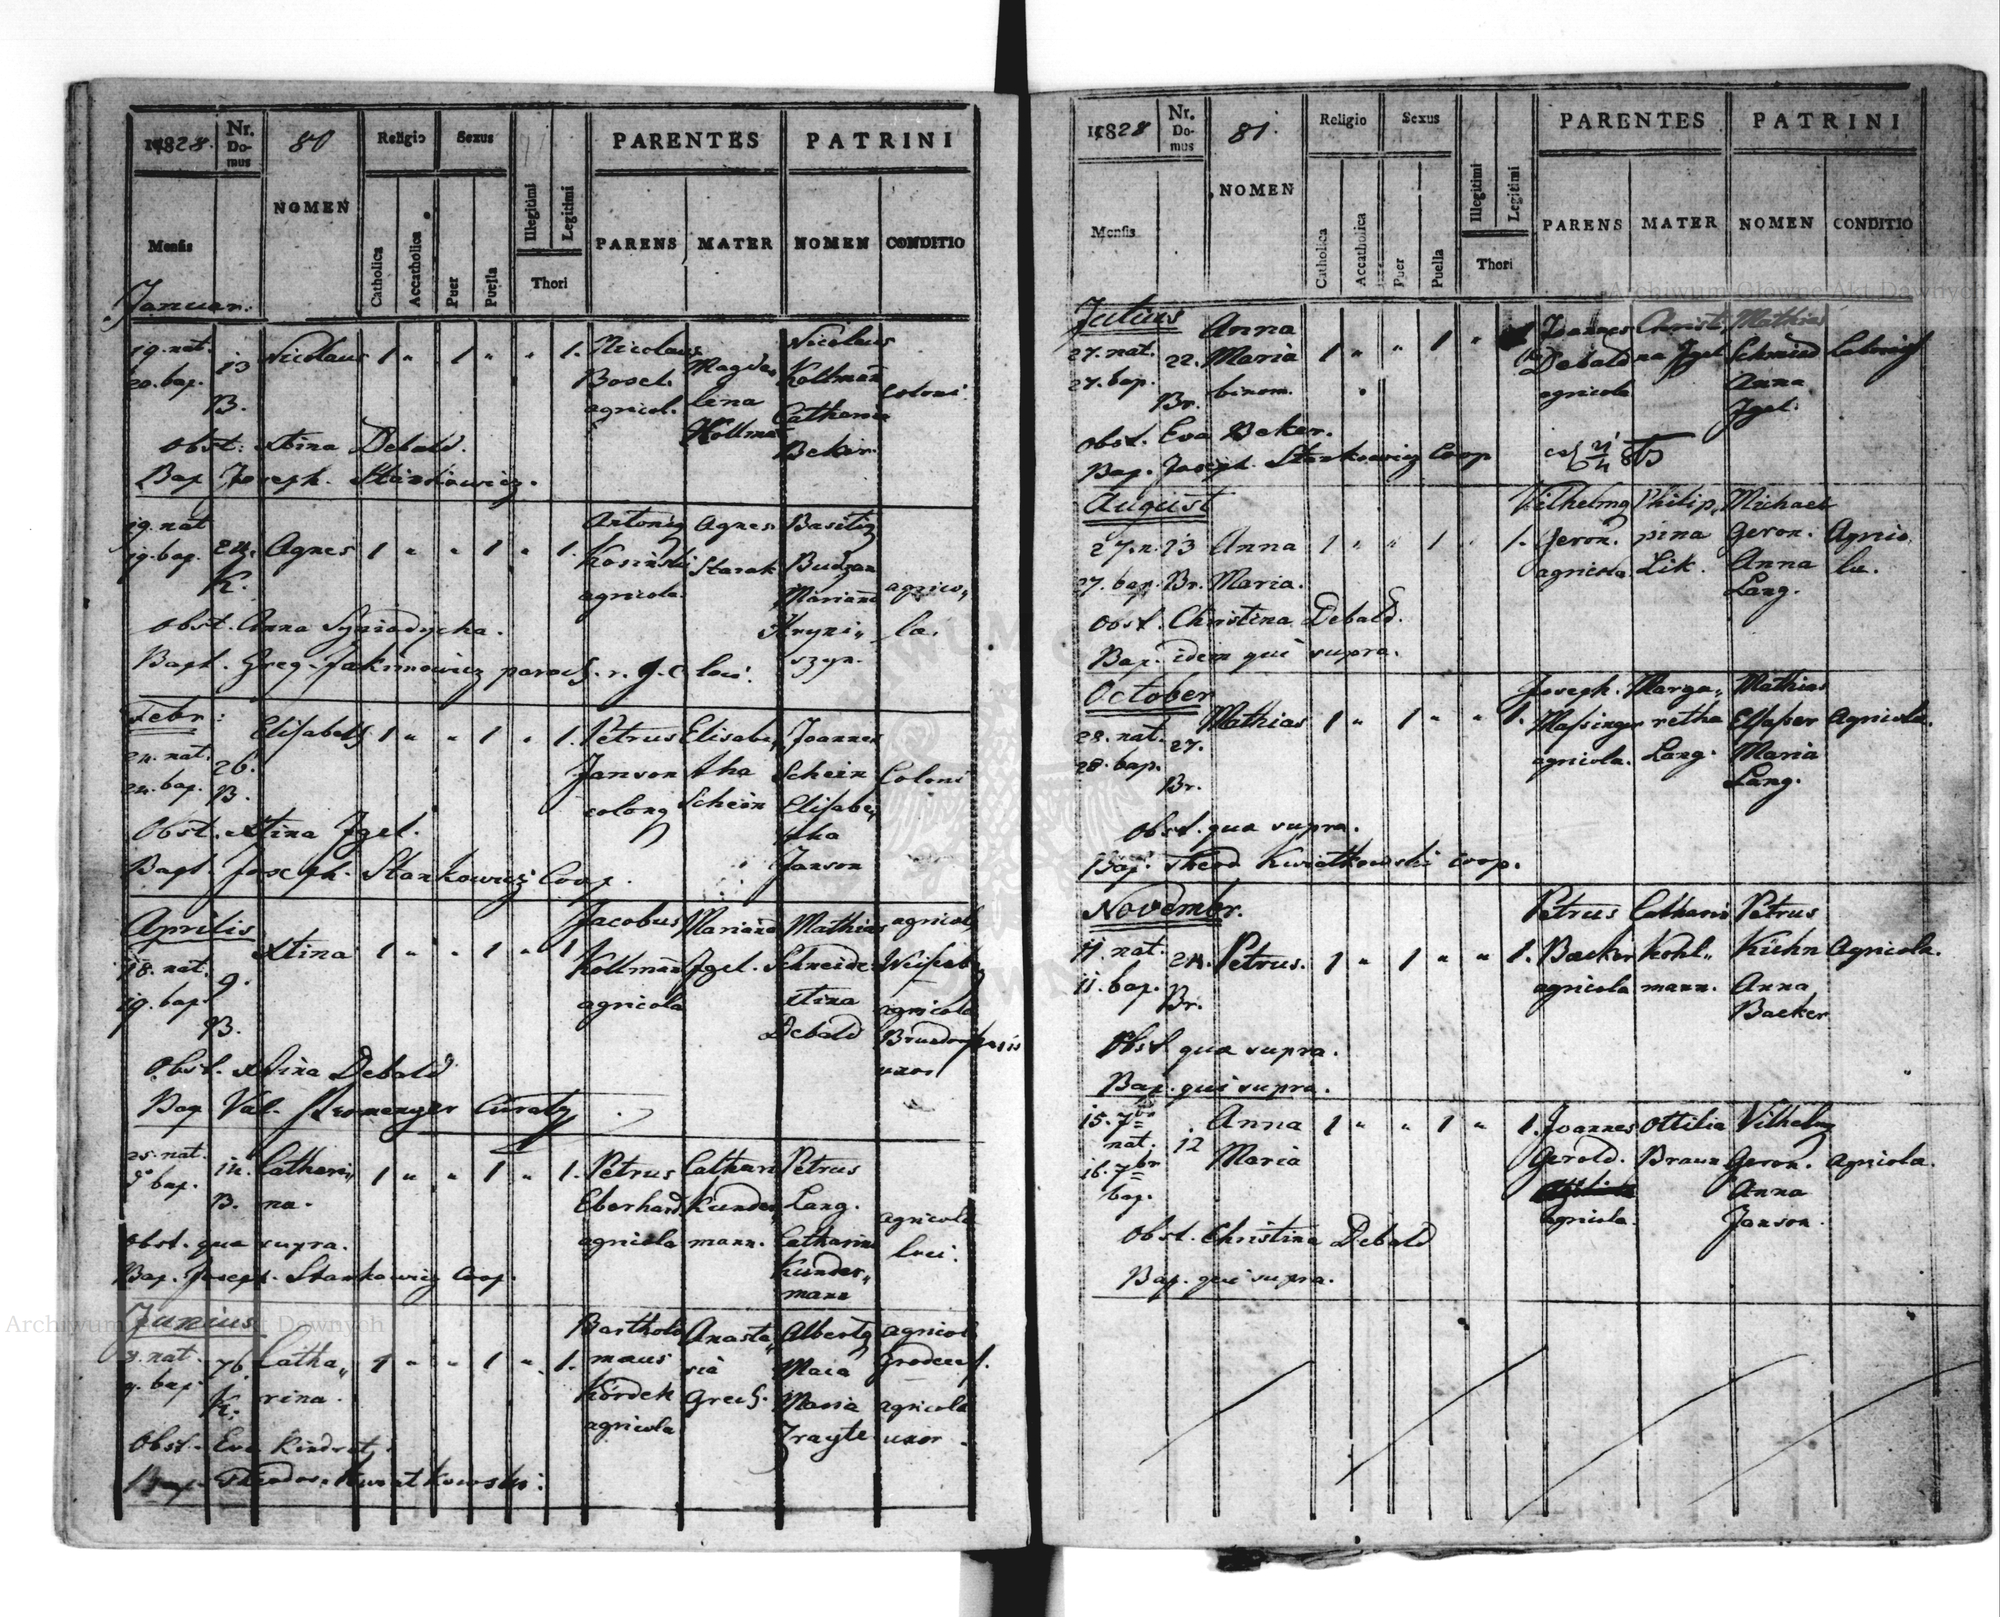 1828.
Nr. Domus
80
Religio
Sexus
PARENTES
PATRINI
Mensis
NOMEN
Catholica
Accatholica
Puer
Puella
Illegitimi
Legitimi
Thori
PARENS
MATER
NOMEN
CONDITIO
Januar.
19. nat. 13 Nicolaus 1 " 1 " " 1. Nicolaus Magda Nicolaus
20. bap. B. Bosel. lina Kollman Coloni
agricol. Kollman Catharina
Beker.
Obst: Xtina Debald.
Bap. Joseph. Stankowicz.
19. nat 24. Agnes 1 " " 1 " 1. Antonius Agnes Basilius
19. bap. K. Kosinski Starak Budzan agrico„
agricola. Marianna
Hryni„ la.
szyn.
Obst. Anna
Bapt. Greg. Jakimowicz paroch. r. g. c. loci.
Febr:
24. nat. 26. Elisabeth 1 " " 1 " 1. Petrus Elisabe„ Joannes
24. bap. B. Janson tha Schein Coloni
colonus Schein Elisabe„
tha
Janson
Obst. Xtina Igel.
Bapt. Joseph. Stankowicz Coop.
Aprilis
18. nat. 9. Xtina 1 " " 1 " 1. Jacobus Marianna Mathias agricola
19. bap. B. Kollman Igel. Schneider
agricola Xtina agricola
Debald
uxor
Obst. Xtina Debald
Bap. Val. Curatus
25. nat. 14. Catheri„ 1 " " 1 " 1. Petrus Cathari Petrus
d° bap. B. na. Eberhard Kunder„ Lang. agricola
agricola mann. Catharina loci.
Kunder„
mann
Obst. qua supra.
Bap. Joseph. Stankowicz Coop.
Junius
3. nat. 76. Catha„ 1 " " 1 " 1. Bartholo Anasta„ Albertus agricola
4. bap. K. rina. maus sia Maia
Kordek Grech. Maria agricola
agricola uxor.
Obst. Eva
Bap. Theodor. Kwiatkowski.
1828
Nr. Domus
81.
Religio
Sexus
PARENTES
PATRINI
Mensis
NOMEN
Catholica
Accatholica
Puer
Puella
Illegitimi
Legitimi
Thori
PARENS
MATER
NOMEN
CONDITIO
Archiwum Główne Akt Dawnych
Julius
27. nat. 22. Anna Maria 1 " " 1 " Joannes Christi„ Mathias
27. bap. Br. binom. Debald na Igel Schmied
agricola Anna
Igel.
Obst. Eva Beker.
Bap. Joseph. Stankowicz Coop
August
27. n. 23 Anna 1 " " 1 " 1. Vilhelmus Philip„ Michael
27. bap. Br. Maria. Geron. pina Geron. Agrico„
agricola Lik. Anna lae.
Lang.
Obst. Christina Debald.
Bap. idem qui supra.
October
28. nat. 27. Mathias 1 " 1 " " 1. Joseph. Marga„ Mathias
28. bap. Br. Massinger retha Agricola.
agricola. Lang. Maria
Lang.
Obst. qua supra.
Bap. Theod Kwiatkowski Coop.
Novembr.
11. nat. 24. Petrus. 1 " 1 " " 1. Petrus Catharin Petrus
11. bap. Br. Backer Kohl„ Kühn Agricola.
agricola mann. Anna
Backer
Obst. qua supra.
Bap. qui supra.
15. 7br nat. 12 Anna 1 " " 1 " 1. Joannes Ottilia Vilhelmus
16. 7br bap. Maria Gerold. Braun Geron. Agricola.
agricola. Anna
Janson.
Obst. Christina Debald
Bap. qui supra.
Archiwum Główne Akt Dawnych